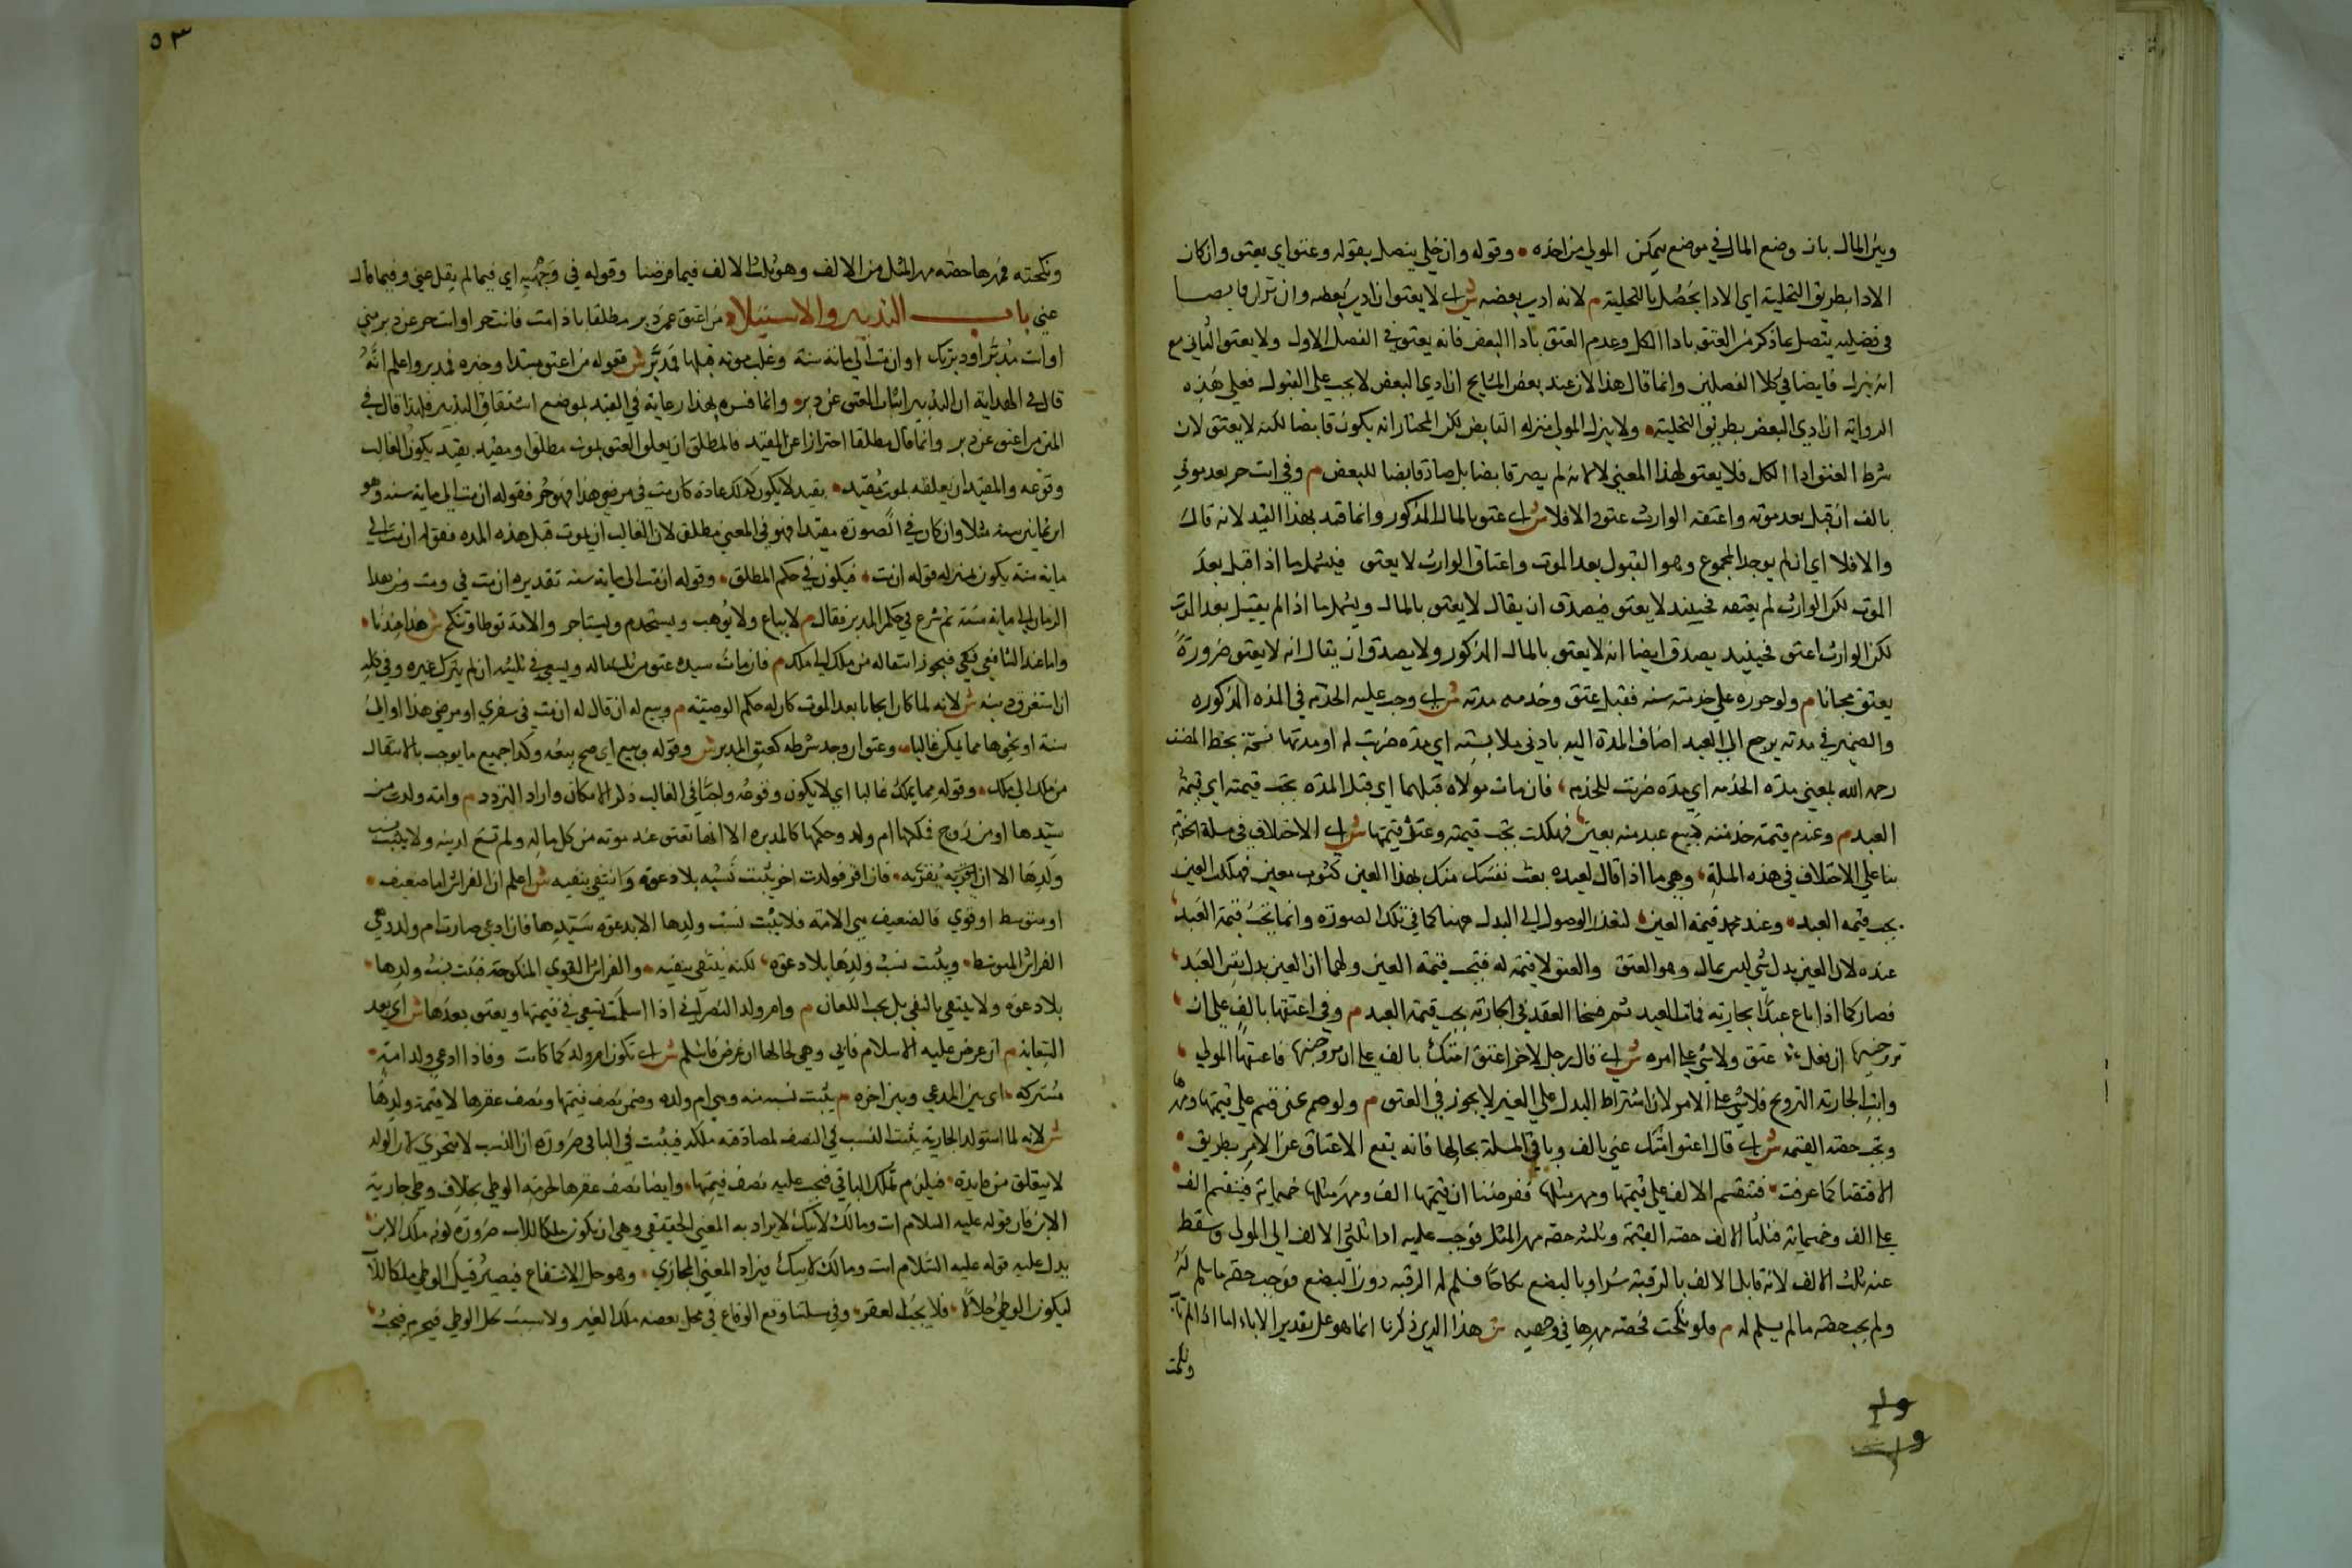 وبين المال بان وضع المال في موضع يمكن المولى من اخذه وقوله وان خلى يتصل بقوله وعتق اي يعتق وان كان
الادا بطريق التخلية اي الادا يحصل بالتخلية م لانه ادى بعضه ش اي لا يعتق ان ادى بعضه وان نزل قابضا
في فصليه يتصل بما ذكر من العتق بادا الكل وعدم العتق بادا البعض فانه يعتق في الفصل الاول ولا يعتق الثاني مع
انه ينزل قابضا في كلا الفصلين وانما قال هذا لان عند بعض المشايخ ان ادى البعض لا يجب على القبول فعلى هذه
الرواية ان ادى البعض بطريق التخلية ولا ينزل المولى منزله القابض لكن المختار انه يكون قابضا لكنه لا يعتق لان
شرط العتق ادا الكل فلا يعتق لهذا المعنى لا لانه لم يصر قابضا بل صار قابضا للبعض م وفي انت حر بعد موتي
بالف ان قبل بعد موته واعتقه الوارث عتق والا فلا ش اي عتق بالمال المذكور وانما قيد بهذا القيد لانه قال
والا فلا اي ان لم يوجد المجموع وهو القبول بعد الموت واعتاق الوارث لا يعتق فيشمل ما اذا قبل بعد
الموت لكن الوارث لم يعتقه فحينيذ لا يعتق فيصدق ان يقال لا يعتق بالمال ويشمل ما اذا لم يقبل بعد الموت
لكن الوارث اعتق فحينيذ يصدق ايضا انه لا يعتق بالمال المذكور ولا يصدق ان يقال انه لا يعتق ضرورة
يعتق مجانا م ولو حرره على خدمته سنه فقبل عتق وخدمه مدته ش اي وجب عليه الخدمة في المده المذكوره
والضمير في مدته يرجع الى العبد اضاف المدة اليه بادنى ملابسة اي مده ضربت له او مدتها نسخة بخط المصنف
رحمه الله بمعنى مدة الخدمه اي مده ضربت للخدمه فان مات مولاه قبلها اي قبل المدة تجب قيمته اي قيمة
العبد م وعندم قيمة خدمته كبيع عبد منه بعين فهلكت تجب قيمته وعند قيمتها ش اي الاختلاف في مسلة الخدمة
بنا على الاختلاف في هذه المسلة وهي ما اذا قال لعبده بعت نفسك منك بهذا العين كثوب معين فهلك العين
يجب قيمة العبد وعند محمد قيمة العين لتعذر الوصول الى البدل ههنا كما في تلك الصورة وانما تجب قيمة العبد
عنده لان العين بدل شي ليس بمال وهو العتق والعتق لا قيمة له فتجب قيمة العين ولهما ان العين بدل نفس العبد
فصار كما اذا باع عبدا بجارية فمات العبد ثم فسخا العقد في الجارية يجب قيمة العبد م وفي اعتقها بالف على ان
تزوجنيها ان فعل عتق ولا شي على امره ش اي قال رجل لاخر اعتق امتك بالف على ان تزوجنيها فاعتقها المولى
وابت الجارية التزوج فلا شي على الامر لان اشتراط البدل على الغير لا يجوز في العتق م ولو ضم عني قسم على قيمتها ومهر
وتجب حصة القيمه ش اي قال اعتق امتك عني بالف وباقي المسلة بحالها فانه يقع الاعتاق عن الامر بطريق
الاقتضا كما عرفت فتقسم الالف على قيمتها ومهر مثلها ففرضنا ان قيمتها الف ومهر مثلها خمسماية فينقسم الف
على الف وخمسماية فثلثا الالف حصة القيمة وثلثه حصة مهر المثل فوجب عليه ادا ثلثي الالف الى المولى وسقط
عنه ثلث الالف لانه قابل الالف بالرقبة شرا وبالبضع نكاحا فسلم له الرقبه دون البضع فوجب حصة ما سلم له
ولم يجب حصة ما لم يسلم له م ولو نكحت فحصة مهرها في وجهيه ش هذا الذي ذكرنا انما هو على تقدير الاباء اما اذا لم تاب
ونكحت
٥٣
ونكحته فمهرها حصته مهر المثل من الالف وهو ثلث الالف فيما فرضنا وقوله في وجهيه اي فيما لم يقل عني وفيما قال
عني باب التدبير والاستيلاد من اعتق عن دبر مطلقا باذا مت فانت حر او انت حر عن دبر مني
او انت مدبر او دبرتك او ان مت الى مائة سنة وغلب موته قبلها فمدبر ش فقوله من اعتق مبتدا وخبره فمدبر واعلم انه
قال في الهداية ان التدبير اثبات العتق عن دبر وانما فسره بهذا رعاية في القيد لموضع اشتقاق التدبير فلهذا قال في
المتن من اعتق عن دبر وانما قال مطلقا احترازا عن المقيد فالمطلق ان يعلق العتق بموت مطلق او مقيد بقيد يكون الغالب
وقوعه والمقيد ان يعلقه بموت مقيد بقيد لا يكون كذلك عادة كان مت في مرضي هذا فهو حر فقوله ان مت الى ماية سنه وهو
ابن ثمانين سنه مثلا وان كان في الصورة مقيدا فهو في المعنى مطلق لان الغالب ان يموت قبل هذه المده فقوله ان مت الى
ماية سنة يكون بمنزله قوله ان مت فيكون في حكم المطلق وقوله ان مت الى ماية سنه تقديره ان مت في وقت من هذا
الزمان الى ماية سنة ثم شرع في حكم المدبر فقال م لا يباع ولا يوهب ويستخدم ويستاجر والامة توطا وتنكح ش هذا عندنا
واما عند الشافعي فيجوز انتقاله من ملك الى ملك م فان مات سيده عتق من ثلث ماله ويسعى في ثلثيه ان لم يترك غيره وفي كله
ان استغرق دينه ش لانه لما كان ايجابا بعد الموت كان له حكم الوصية م وبيع له ان قال له ان مت في سفري او مرضي هذا او الى
سنة او نحوها مما يمكن غالبا وعتق ان وجد شرطه كعتق المدبر ش وقوله وبيع اي صح بيعه وكذا جميع ما يوجب الانتقال
من ملك الى ملك وقوله مما يمكن غالبا اي لا يكون وقوعه واجبا في الغالب ذكر الامكان واراد التردد م وامه ولدت من
سيدها او من زوج فملكها ام ولد وحكمها كالمدبره الا انها تعتق عند موته من كل ماله ولم تسع لدينه ولا يثبت نسب
ولدها الا ان يقر به فان اقر فولدت اخر يثبت نسبه بلا دعوة وانتفى بنفيه ش اعلم ان الفراش اما ضعيف
او متوسط او قوي فالضعيف هي الامة فلا يثبت نسب ولدها الا بدعوة سيدها فان ادعى صارت ام ولد وهي
الفراش المتوسط ويثبت نسب ولدها بلا دعوة لكنه ينتفي بنفيه والفراش القوي المنكوحة فيثبت نسب ولدها
بلا دعوة ولا ينتفي بالنفي بل يجب اللعان م وام ولد النصراني اذا اسلمت تسعى في قيمتها ويعتق بعدها ش اي بعد
السعاية م ان عرض عليه الاسلام فابى وهي لحالها ان عرض فاسلم ش اي تكون ام ولد كما كانت وفاذا ادعى ولد امة
مشتركه اي بين المدعي وبين اخره م يثبت نسبه منه وهي ام ولده وضمن نصف قيمتها ونصف عقرها لا قيمة ولدها
ش لانه لما استولد الجارية يثبت النسب في النصف لمصادفته ملكه فيثبت في الباقي ضرورة ان النسب لا يتجزى لان الولد
لا يتعلق من مايين فيلزم تملك الباقي فيجب عليه نصف قيمتها وايضا نصف عقرها لحرمة الوطي بخلاف وطي جارية
الابن فان قوله عليه السلام انت ومالك لابيك لا يراد به المعنى الحقيقي وهي ان يكون ملكا للاب ضرورة كونه ملك الابن
يدل عليه قوله عليه السلام انت ومالك لابيك فيراد المعنى المجازي وهو حل الانتفاع فيصير قبيل الوطي ملكا للاب
ليكون الوطي حلالا فلا يجب العقر وفي مسلتنا وقع الوقاع في محل بعضه ملك الغير ولا سبب لحل الوطي فيحرم فيجب